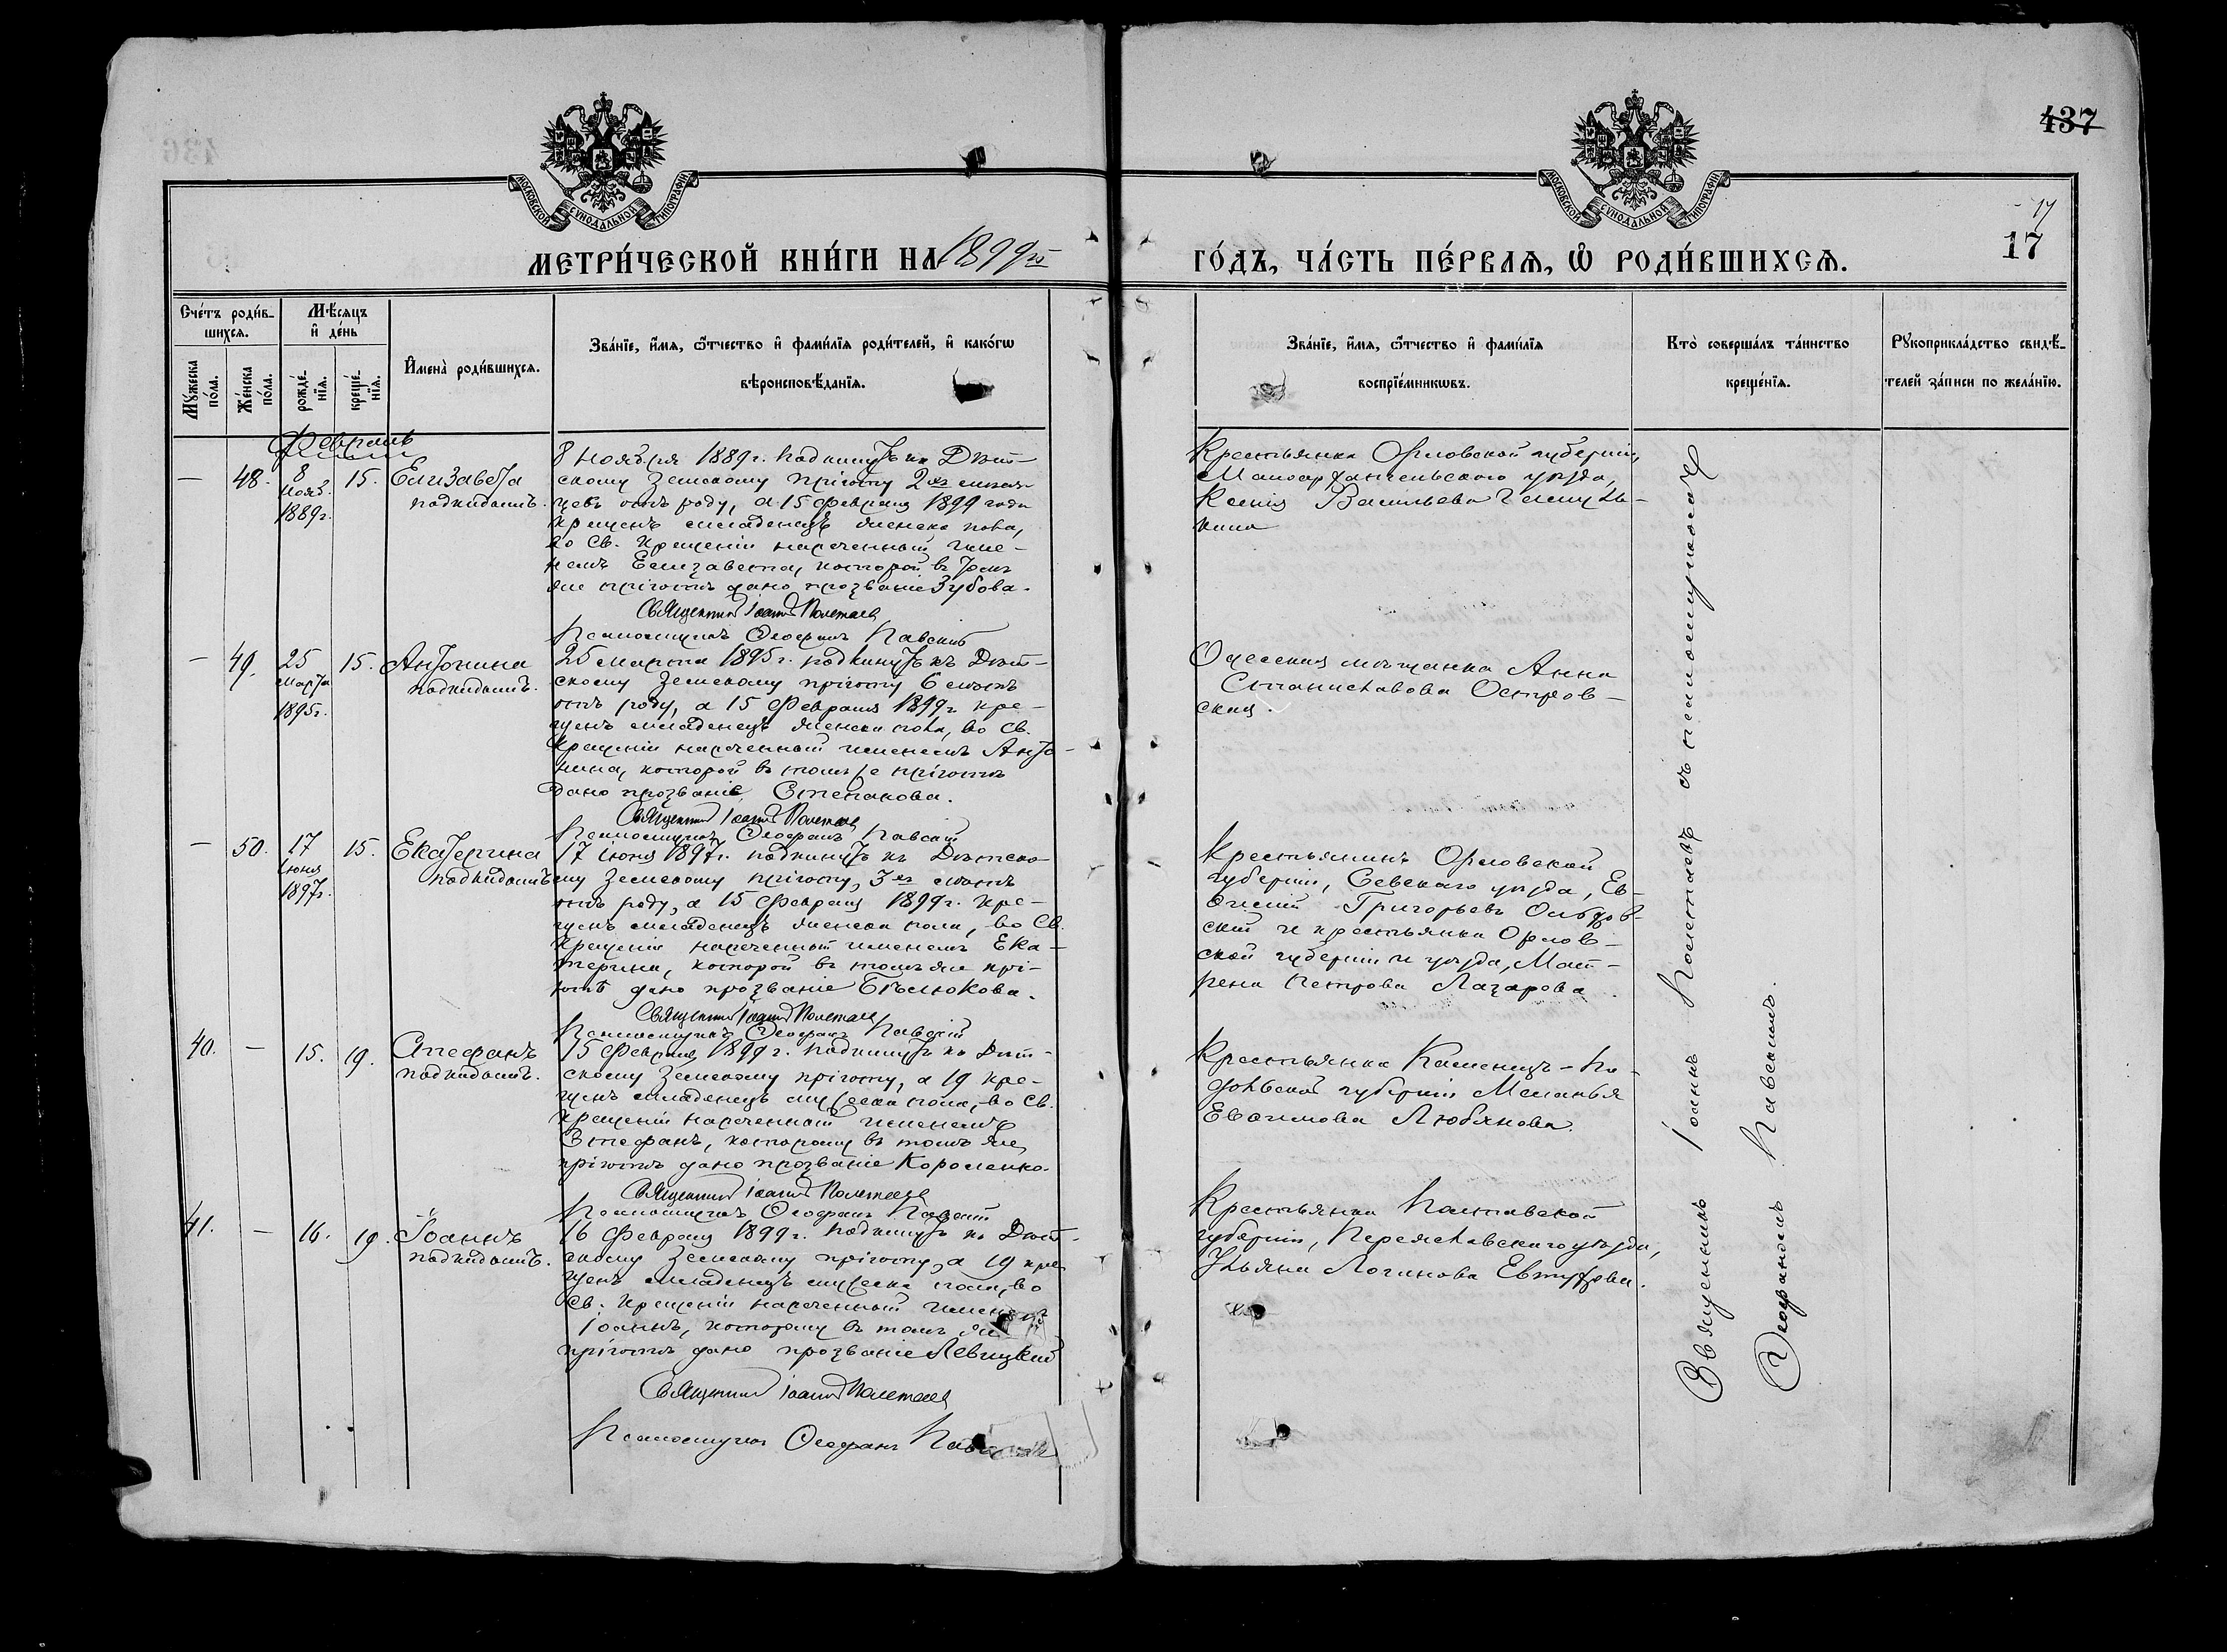 437
МОСКОВСКОЙ СѴНОДАЛЬНОЙ ТИПОГРАФІИ
МОСКОВСКОЙ СѴНОДАЛЬНОЙ ТИПОГРАФІИ
17
17
МЕТРИ́ЧЕСКОЙ КНИ́ГИ НА 1899й
ГО́ДЪ, ЧА́СТЬ ПЕ́РВАЯ, Ѡ РОДИ́ВШИХСЯ.
Сче́тъ роди́в-
шихся.
Му́жеска
по́ла.
Же́нска
по́ла.
Мѣ́сяцъ
и҆ де́нь
рожде́-
нїя.
креще́-
нїя.
И҆мена̀ роди́вшихся.
Зва́нїе, и҆́мя, ѻ҆́тчество и҆ фами́лїя роди́телей, и҆ како́гѡ
вѣроисповѣ́данїя.
Зва́нїе, и҆́мя, ѻ҆́тчество и҆ фами́лїя
воспрїе́мникѡвъ.
Кто̀ соверша́лъ та́инство
креще́нїя.
Рꙋкоприкла́дство свидѣ́-
телей за́писи по жела́нїю.
Февраль
— 48. 8
Нояб.
1889г.
15. Елизавета
подкидышъ.
8 Ноября 1889г. подкинутъ къ Дѣт-
скому Земскому пріюту 2хъ мѣся-
цевъ отъ роду, а 15 Февраля 1899 года
крещенъ младенецъ женска пола,
во Св. Крещеніи нареченный име-
немъ Елизавета, которой въ томъ
же пріютѣ дано прозваніе Зубова.
Священникъ Іоаннъ Полетаевъ
Псаломщикъ Ѳеофанъ Павскій
Крестьянка Орловской губерніи,
Малоархангельскаго уѣзда,
Ксенія Васильева
— 49. 25
Марта
1895г.
15. Антонина
подкидышъ.
25 марта 1895г. подкинутъ къ Дѣт-
скому Земскому пріюту 6 мѣсяц.
отъ роду, а 15 Февраля 1899г. кре-
щенъ младенецъ женска пола, во Св.
Крещеніи нареченный именемъ Анто-
нина, которой въ томъ же пріютѣ
дано прозваніе Степанова.
Священникъ Іоаннъ Полетаевъ
Псаломщикъ Ѳеофанъ Павскій
Одесская мѣщанка Анна
Станиславова Островской-
ская.
— 50. 17
Іюня
1897г.
15. Екатерина
подкидышъ
17 Іюня 1897г. подкинутъ къ Дѣтско-
му Земскому пріюту, 3хъ мѣсяц.
отъ роду, а 15 Февраля 1899г. кре-
щенъ младенецъ женска пола, во Св.
Крещеніи нареченный именемъ Ека-
терина, которой въ томъ же прі-
ютѣ дано прозваніе Бѣлюкова.
Священникъ Іоаннъ Полетаевъ
Псаломщикъ Ѳеофанъ Павскій
Крестьянинъ Орловской
губерніи, Севскаго уѣзда, Ев-
Григорьевъ
и крестьянка Орлов-
ской губерніи и уѣзда, Мат-
рена Петрова Лазарева
40. — 15. 19. Стефанъ
подкидышъ.
15 Февраля 1899г. подкинутъ къ Дѣт-
скому Земскому пріюту, а 19 кре-
щенъ младенецъ мужеска пола, во Св.
Крещеніи нареченный именемъ
Стефанъ, которому въ томъ же
пріютѣ дано прозваніе Короленко.
Священникъ Іоаннъ Полетаевъ
Псаломщикъ Ѳеофанъ Павскій
Крестьянка Каменецъ-По-
дольской губерніи Меланья
Евфимова Любянова.
41. — 16. 19. Іоаннъ
подкидышъ.
16 Февраля 1899г. подкинутъ къ Дѣт-
скому Земскому пріюту, а 19 кре-
щенъ младенецъ мужеска пола, во
Св. Крещеніи нареченный именемъ
Іоаннъ, которому въ томъ же
пріютѣ дано прозваніе Левицкій
Священникъ Іоаннъ Полетаевъ
Псаломщикъ Ѳеофанъ
Крестьянка Полтавской
губерніи, Переяславскаго уѣзда,
Ульяна Логинова
Священникъ Іоаннъ Полетаевъ съ псаломщикомъ
Ѳеофаномъ Павскимъ.